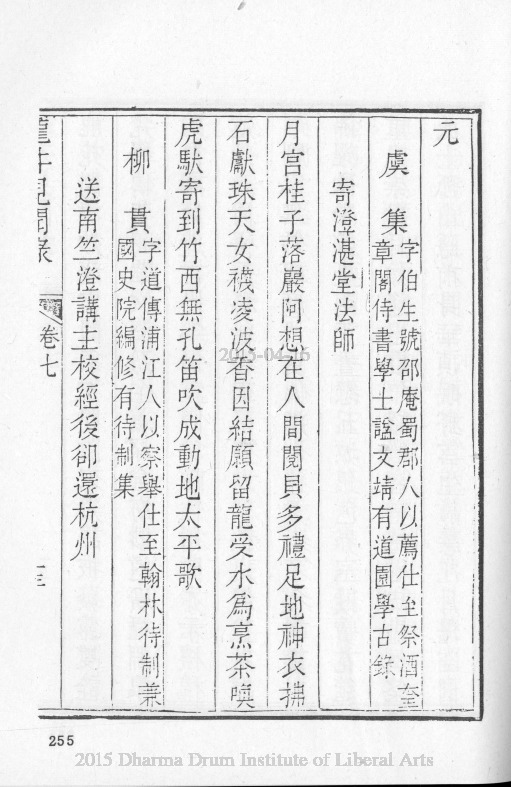 元
虞集字伯生號邵庵蜀郡人以薦仕至祭酒奎
章閣侍書學士諡文靖有道園學古錄
寄澄湛堂法師
月宮桂子落巖阿想在人間閱貝多禮足地神衣拂
石獻珠天女襪凌波香因結願留龍受水爲烹茶喚
虎馱寄到竹西無孔笛吹成動地太平歌
柳貫字道傳浦江人以察舉仕至翰林待制兼
國史院編修有待制集
送南竺澄講主校經後卻還杭州
龍井見聞錄 卷七 十三
2015-04-16
255
2015 Dharma Drum Institute of Liberal Arts